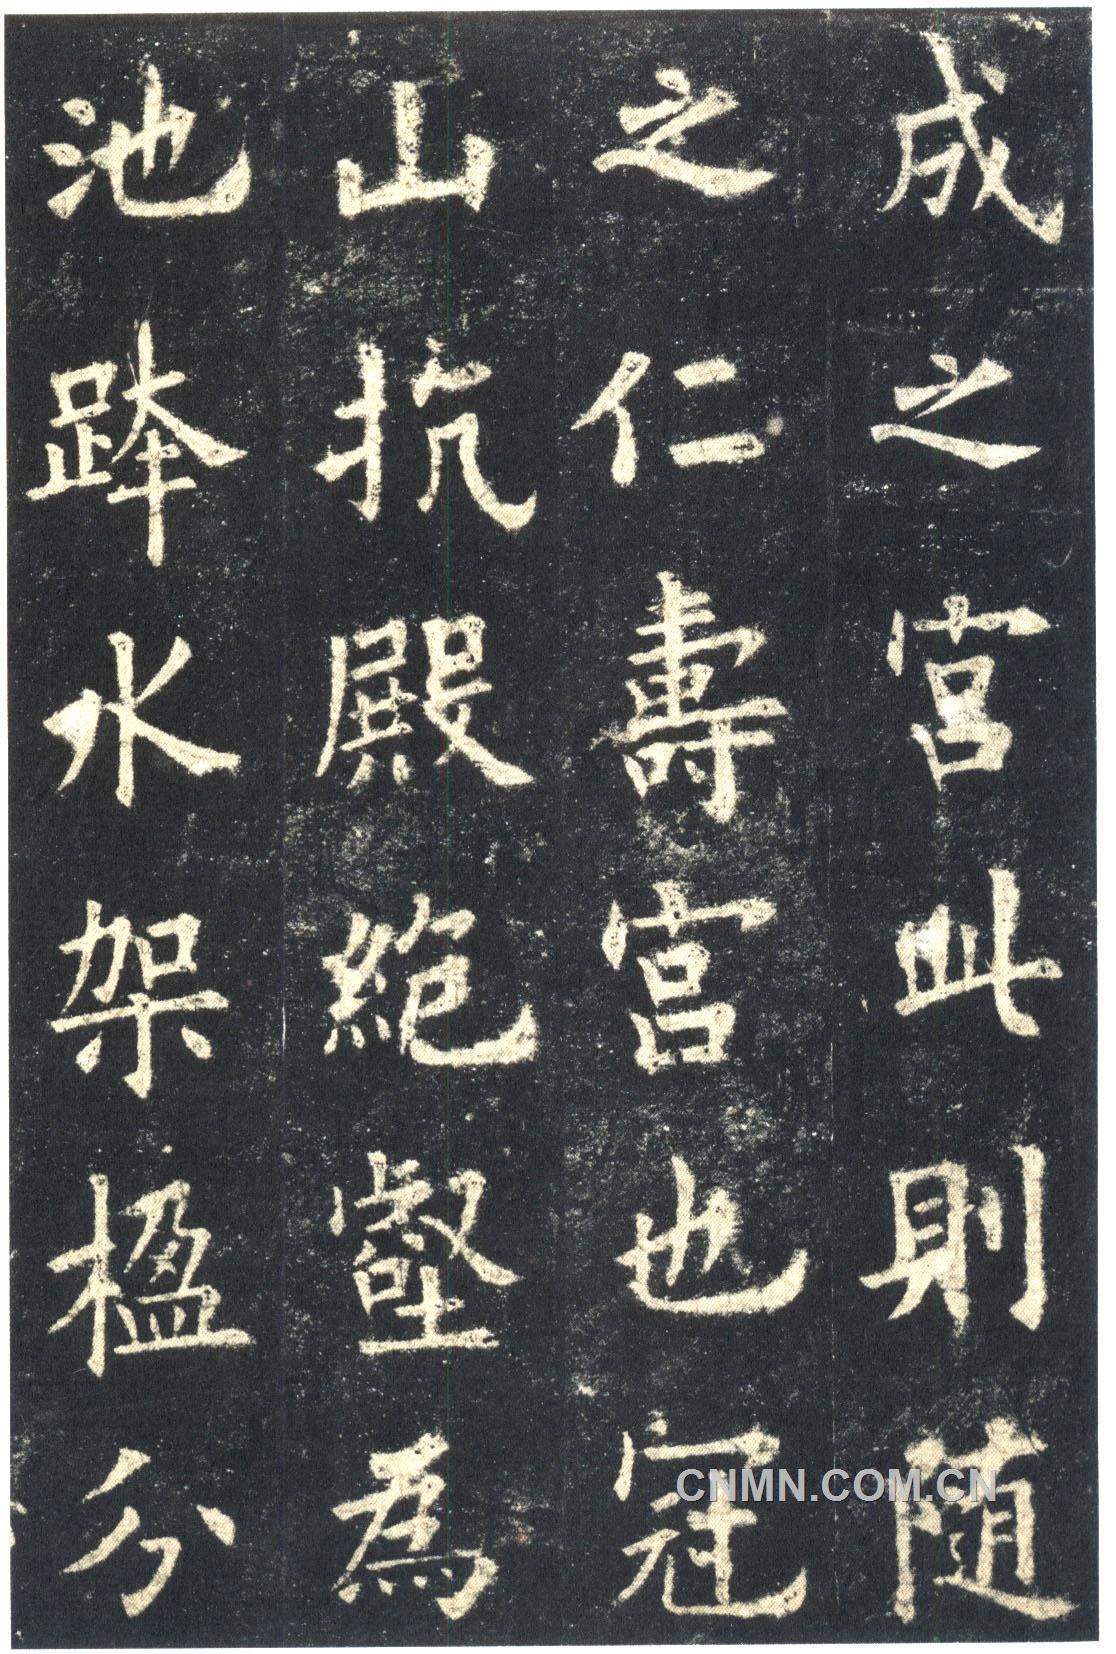 成之宮此則随
之仁壽宮也冠
山抗殿絕壑為
池跨水架楹分
CNMN.COM.CN